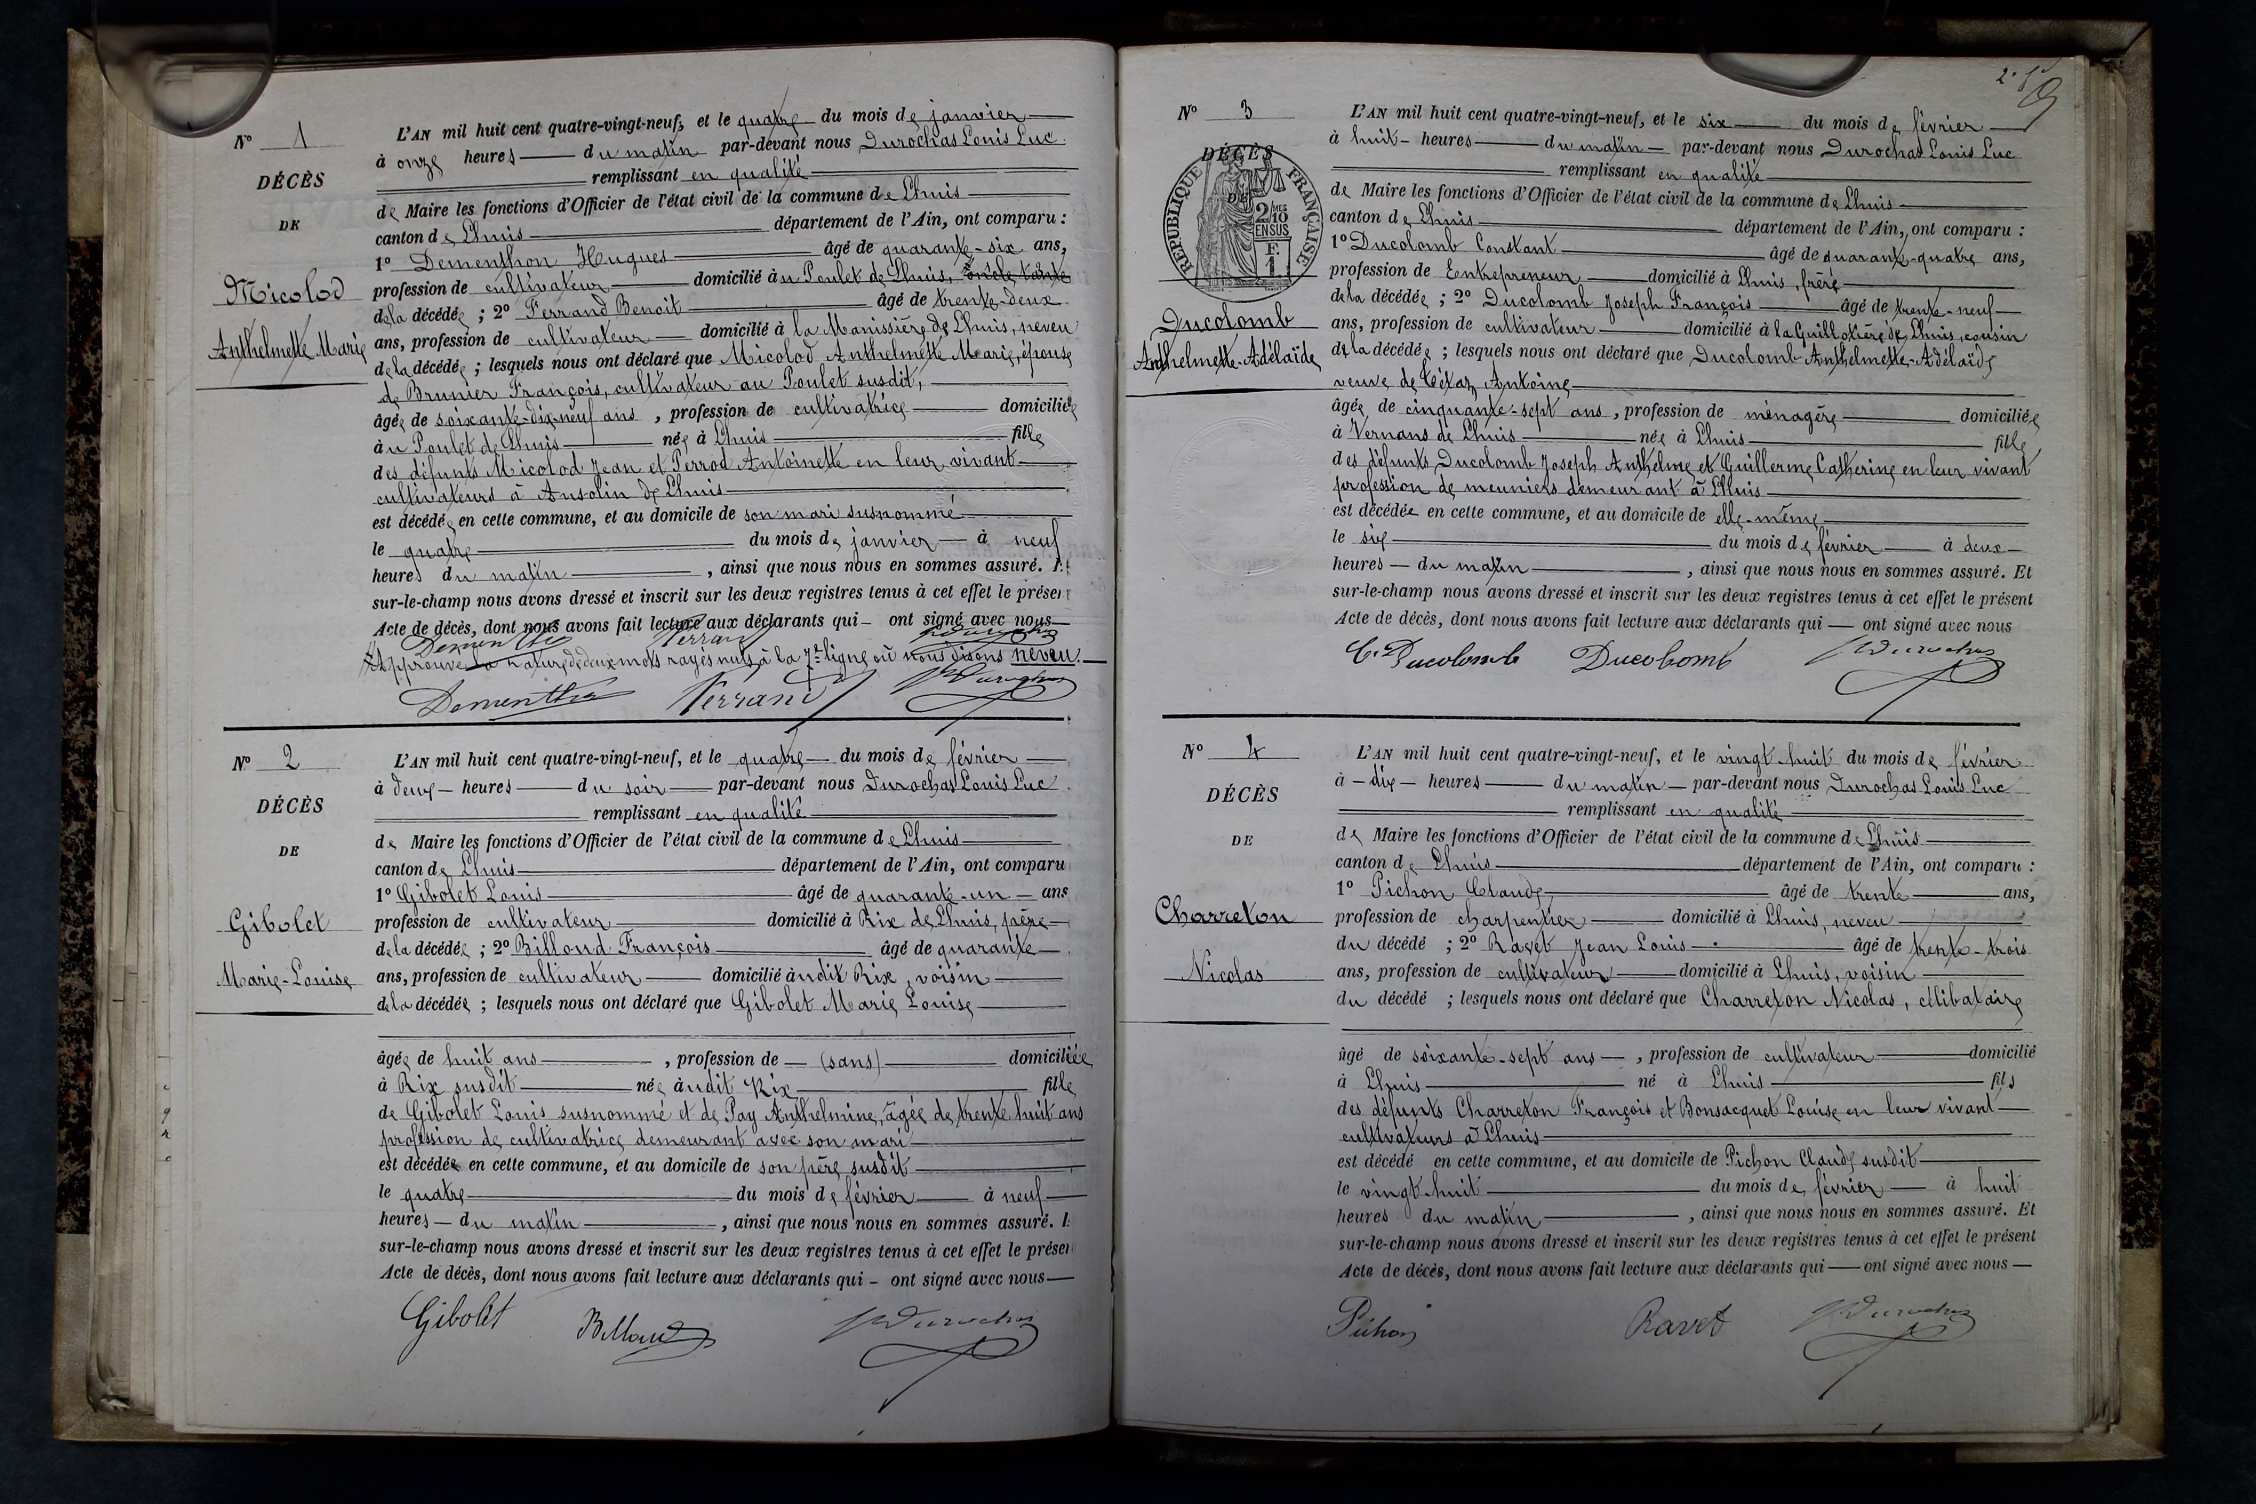 N° 1
DÉCÈS
DE
Micolod
Anthelmette Marie
L'AN mil huit cent quatre-vingt-neuf, et le quatre du mois de janvier
à onze heures du matin par-devant nous Durochas Louis Luc
remplissant en qualité
de Maire les fonctions d'Officier de l'état civil de la commune de Lhuis
canton de Lhuis département de l'Ain, ont comparu :
1° Dementhon Hugues âgé de quarante-six ans,
profession de cultivateur domicilié au Poulet de Lhuis,
de la décédée ; 2° Ferrand Benoit âgé de trente-deux
ans, profession de cultivateur domicilié à la Manissière de Lhuis, neveu
de la décédée ; lesquels nous ont déclaré que Micolod Anthelmette Marie, épouse
de Brunier François, cultivateur au Poulet susdit,
âgée de soixante-dix-neuf ans , profession de cultivatrice domiciliée
au Poulet de Lhuis née à Lhuis fille
des défunts Micolod Jean et Perrod Antoinette en leur vivant
cultivateurs à Ansolin de Lhuis
est décédée en cette commune, et au domicile de son mari susnommé
le quatre du mois de janvier à neuf
heures du matin , ainsi que nous nous en sommes assuré. E
sur-le-champ nous avons dressé et inscrit sur les deux registres tenus à cet effet le présen
Acte de décès, dont nous avons fait lecture aux déclarants qui ont signé avec nous
Dementhon Ferrand Durochas
Approuvé la rature de deux mots rayés nuls à la 7e ligne où nous disons neveu.
Dementhon Ferrand Durochas
N° 2
DÉCÈS
DE
Gibolet
Marie-Louise
L'AN mil huit cent quatre-vingt-neuf, et le quatre du mois de février
à deux heures du soir par-devant nous Durochas Louis Luc
remplissant en qualité
de Maire les fonctions d'Officier de l'état civil de la commune de Lhuis
canton de Lhuis département de l'Ain, ont comparu
1° Gibolet Louis âgé de quarante-un ans
profession de cultivateur domicilié à Rix de Lhuis, père
de la décédée ; 2° Billoud François âgé de quarante
ans, profession de cultivateur domicilié audit Rix, voisin
de la décédée ; lesquels nous ont déclaré que Gibolet Marie Louise
âgée de huit ans , profession de (sans) domiciliée
à Rix susdit née audit Rix fille
de Gibolet Louis susnommé et de Pay Anthelmine, âgée de trente huit ans
profession de cultivatrice demeurant avec son mari
est décédée en cette commune, et au domicile de son père susdit
le quatre du mois de février à neuf
heures du matin , ainsi que nous nous en sommes assuré. E
sur-le-champ nous avons dressé et inscrit sur les deux registres tenus à cet effet le présen
Acte de décès, dont nous avons fait lecture aux déclarants qui ont signé avec nous
Gibolet Billoud Durochas
N° 3
DÉCÈS
DE
RÉPUBLIQUE FRANÇAISE
2/10 MES EN SUS
F. 1
Ducolomb
Anthelmette-Adélaïde
L'AN mil huit cent quatre-vingt-neuf, et le six du mois de février
à huit heures du matin par-devant nous Durochas Louis Luc
remplissant en qualité
de Maire les fonctions d'Officier de l'état civil de la commune de Lhuis
canton de Lhuis département de l'Ain, ont comparu :
1° Ducolomb Constant âgé de quarante-quatre ans,
profession de Entrepreneur domicilié à Lhuis, frère
de la décédée ; 2° Ducolomb Joseph François âgé de trente-neuf
ans, profession de cultivateur domicilié à la Guillotière de Lhuis, cousin
de la décédée ; lesquels nous ont déclaré que Ducolomb Anthelmette-Adélaïde
veuve de Tétaz Antoine
âgée de cinquante-sept ans , profession de ménagère domiciliée
à Vernans de Lhuis née à Lhuis fille
des défunts Ducolomb Joseph Anthelme et Guillerme Catherine en leur vivant
profession de meuniers demeurant à Lhuis
est décédée en cette commune, et au domicile de elle-même
le six du mois de février à deux
heures du matin , ainsi que nous nous en sommes assuré. Et
sur-le-champ nous avons dressé et inscrit sur les deux registres tenus à cet effet le présent
Acte de décès, dont nous avons fait lecture aux déclarants qui ont signé avec nous
C. Ducolomb Ducolomb Durochas
N° 4
DÉCÈS
DE
Charreton
Nicolas
L'AN mil huit cent quatre-vingt-neuf, et le vingt-huit du mois de février
à dix heures du matin par-devant nous Durochas Louis Luc
remplissant en qualité
de Maire les fonctions d'Officier de l'état civil de la commune de Lhuis
canton de Lhuis département de l'Ain, ont comparu :
1° Pichon Claude âgé de trente ans,
profession de charpentier domicilié à Lhuis, neveu
du décédé ; 2° Ravet Jean Louis âgé de trente-trois
ans, profession de cultivateur domicilié à Lhuis, voisin
du décédé ; lesquels nous ont déclaré que Charreton Nicolas, célibataire
âgé de soixante-sept ans , profession de cultivateur domicilié
à Lhuis né à Lhuis fils
des défunts Charreton François et Bonsacquet Louise en leur vivant
cultivateurs à Lhuis
est décédé en cette commune, et au domicile de Pichon Claude susdit
le vingt-huit du mois de février à huit
heures du matin , ainsi que nous nous en sommes assuré. Et
sur-le-champ nous avons dressé et inscrit sur les deux registres tenus à cet effet le présent
Acte de décès, dont nous avons fait lecture aux déclarants qui ont signé avec nous
Pichon Ravet Durochas